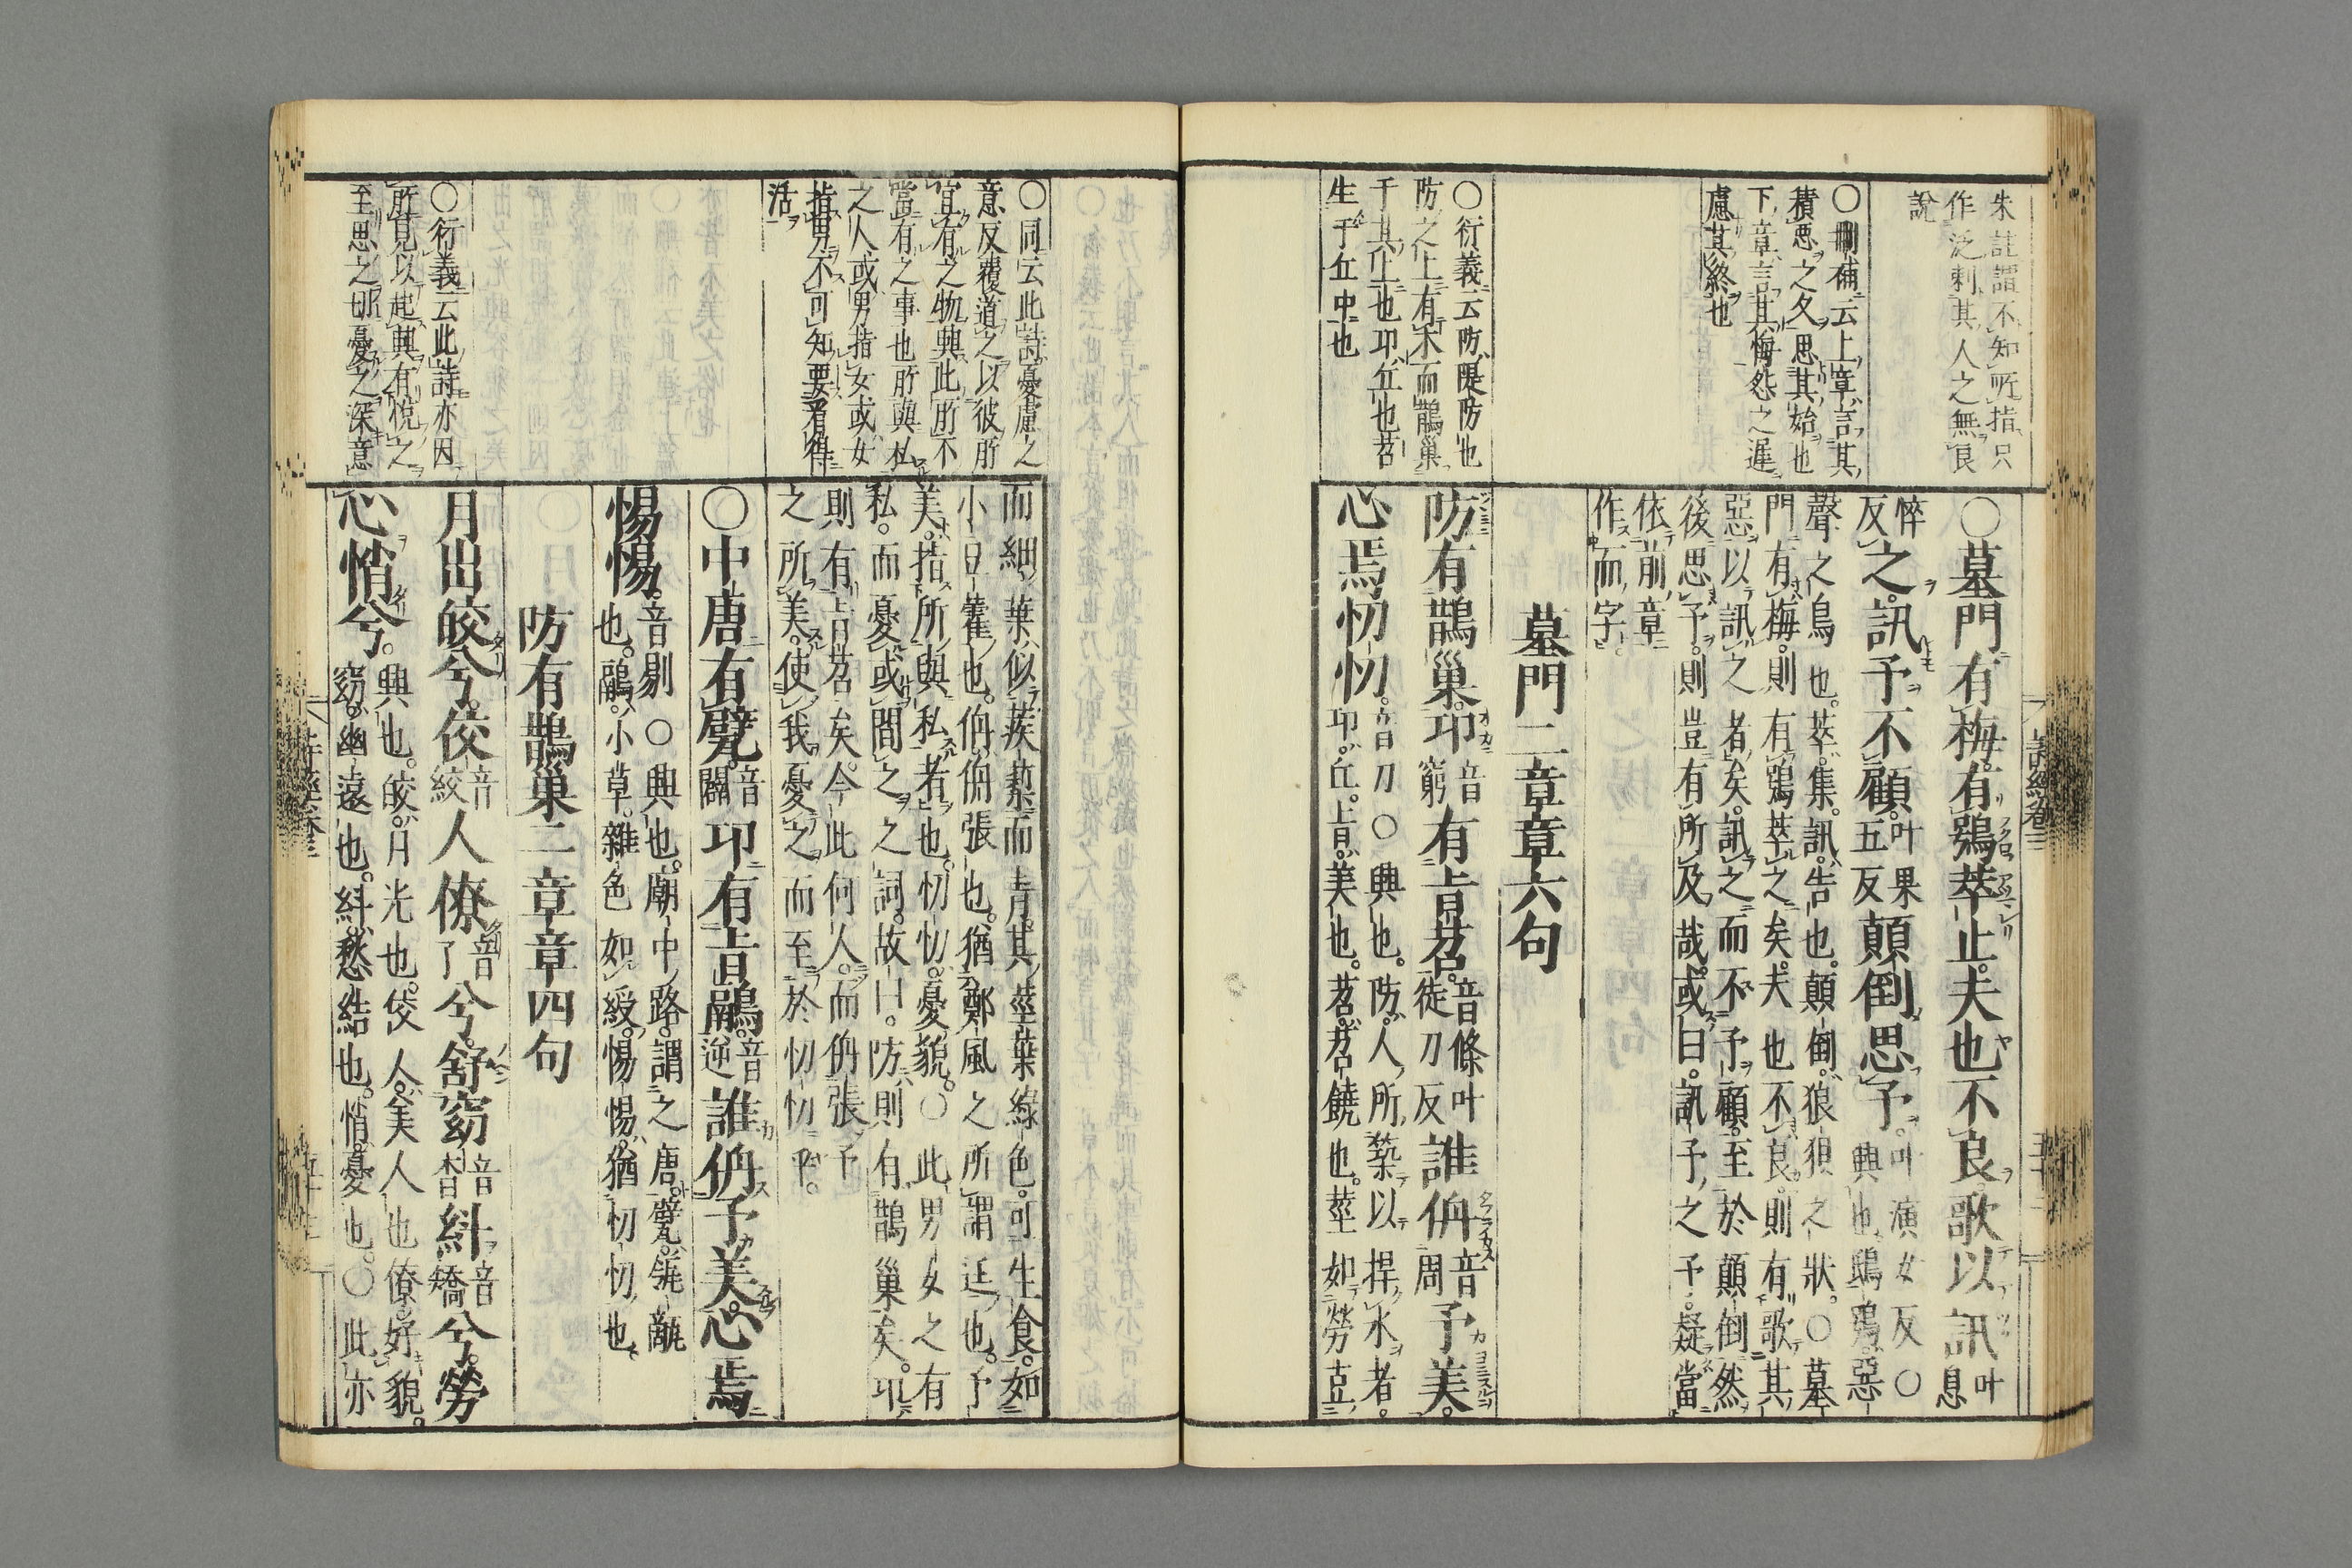 朱註謂不知所指只
作泛刺其人之無良
說
〇刪補云上章言其
積悪之久思其始也
下章言其悔怨之遲
慮其終也
〇衍義云防隄防也
防之上有木而鵲巢
于其上也卭丘也苕
生于丘中也
〇墓門有梅。有鴞萃止。夫也不良。歌以訊叶息
悴反之。訊予不顧。叶果五反顛倒思予。叶演女反〇興也。鴟鴞。惡
聲之鳥也。萃。集。訊。告也。顛倒。狼狽之狀。〇墓
門有梅。則有鴞萃之矣。夫也不良。則有歌其
惡以訊之者矣。訊之而不予顧。至於顛倒然
後思予。則豈有所及哉。或曰。訊予之予。疑當
依前章
作而字。
墓門二章章六句
防有鵲巢。卭音窮有旨苕。音條叶徒刀反誰侜音周予美。
心焉忉忉。音刀〇興也。防。人所築以捍水者。
卭。丘。旨。美也。苕。苕饒也。莖如勞豆
〇同云此詩憂慮之
意反覆道之以彼所
宜有之物興此所不
當有之事也所與私
之人或男指女或女
指男不可知要看得
活
〇衍義云此詩亦因
所見以起興有悅之
至思之切憂之深意
而細。葉似蒺蔾而青。其莖葉綠色。可生食。如
小豆藿也。侜。侜張也。猶鄭風之所謂迋也。予
美。指所與私者也。忉忉。憂貌。〇此男女之有
私。而憂或間之之詞。故曰。防則有鵲巢矣。卭
則有旨苕矣。今此何人。而侜張予
之所美。使我憂之而至於忉忉乎。
〇中唐有甓。音闢卭有旨鷊。音逆誰侜予美。心焉
惕惕。音剔〇興也。廟中路。謂之唐。甓。瓴甋
也。鷊。小草。雜色如綬。惕惕。猶忉忉也。
防有鵲巢二章章四句
月出皎兮。佼音絞人僚音了兮。舒窈音杳糾音矯兮。勞
心悄兮。興也。皎。月光也。佼人。美人也。僚。好貌。
窈。幽遠也。糾。愁結也。悄。憂也。〇此亦